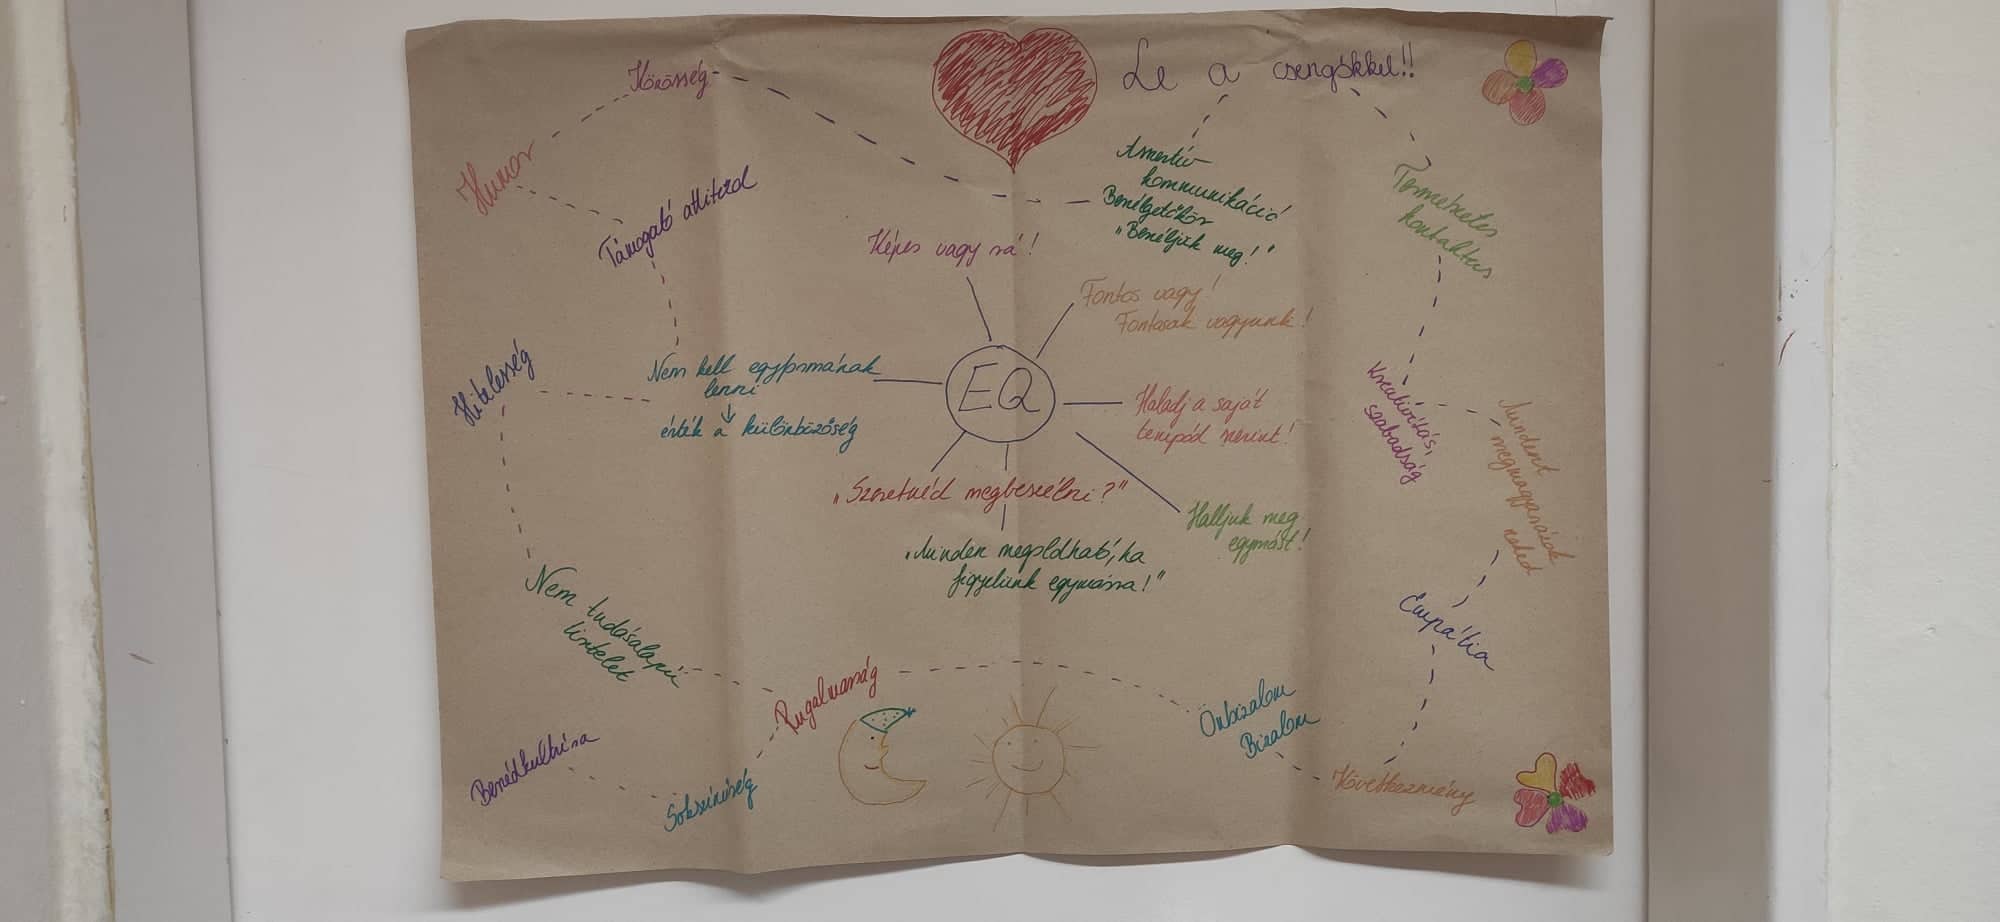 Közösség
Le a csengőkkel!!
Humor
Támogató attitűd
Asszertív
kommunikáció
Beszélgetőkör
"Beszéljük meg!"
Természetes
kontaktus
Képes vagy rá!
Fontos vagy!
Fontosak vagyunk!
Hitelesség
Nem kell egyformának
lenni
↓
érték a különbözőség
EQ
Haladj a saját
tempód szerint!
Kreativitás,
szabadság
Mindent
megmagyarázok
neked
"Szeretnéd megbeszélni?"
Halljuk meg
egymást!
"Minden megoldható, ha
figyelünk egymásra!"
Nem tudásalapú
Empátia
Rugalmasság
Önbizalom
Bizalom
Beszédkultúra
Sokszínűség
Következmény